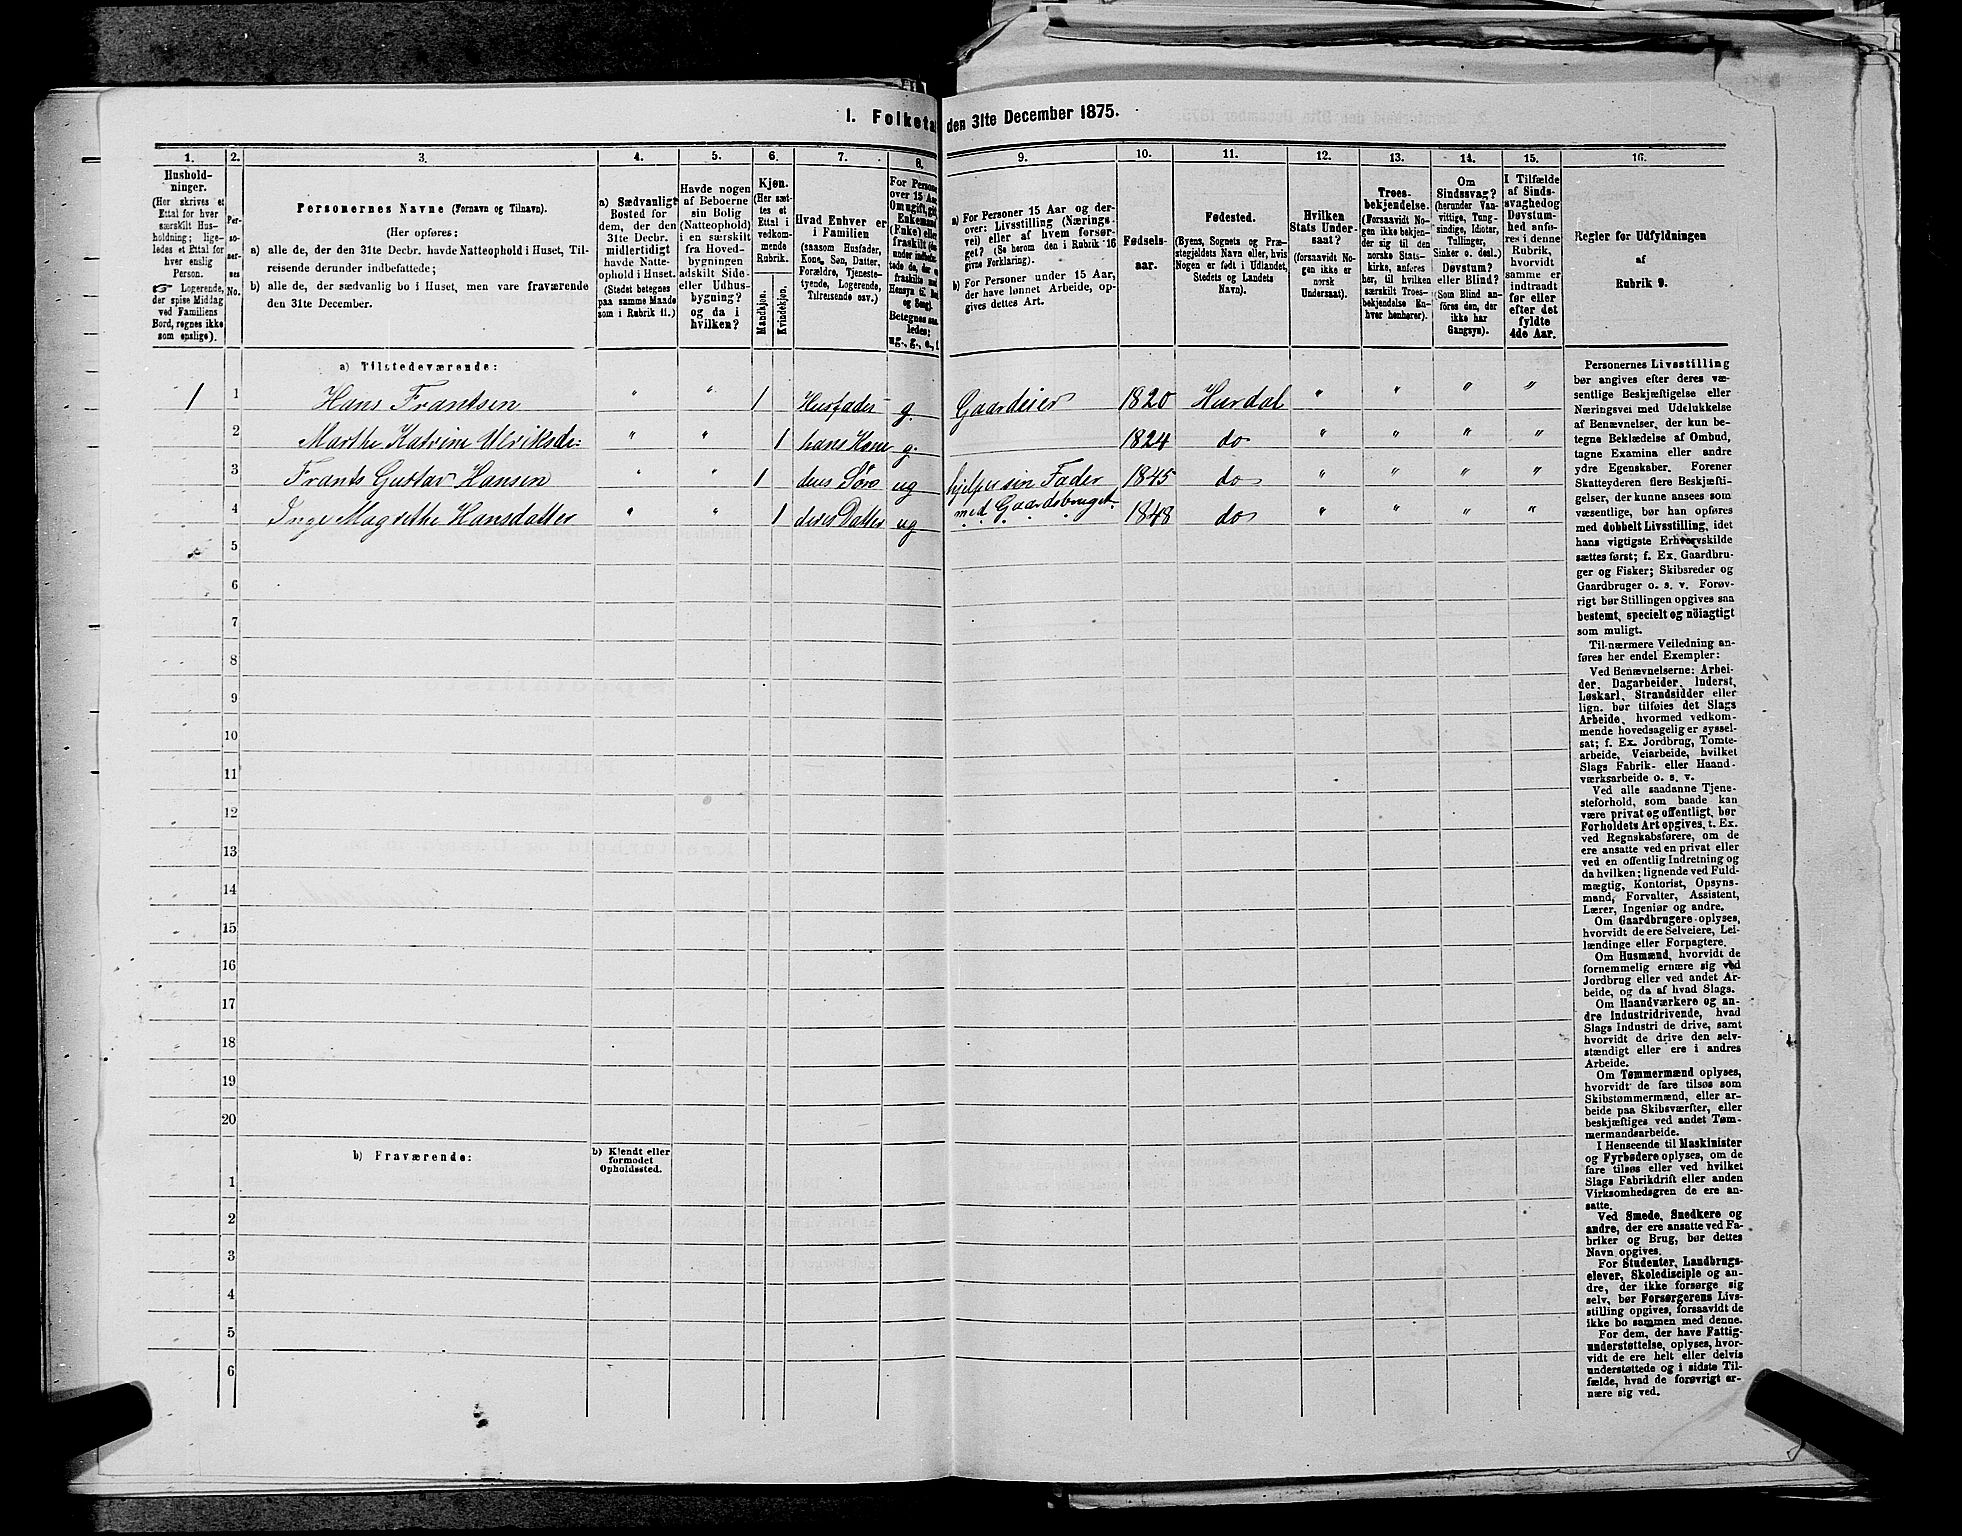 I. Folketal den 31te December 1875.
1. 2. 3. 4. 5. 6. 7. 8. 9. 10. 11. 12. 13. 14. 15. 16.
Hushold-
ninger.
(Her skrives et
Ettal for hver
særskilt Hus-
holdning; lige-
ledes et Ettal for
hver enslig
Person.
☞ Logerende,
der spise Middag
ved Familiens
Bord, regnes ikke
som enslige).
Per-
so-
ner-
nes
No.
Personernes Navne (Fornavn og Tilnavn).
(Her opføres:
a) alle de, der den 31te Decbr. havde Natteophold i Huset, Til-
reisende derunder indbefattede;
b) alle de, der sædvanlig bo i Huset, men vare fraværende
den 31te December.
a) Sædvanligt
Bosted for
dem, der den
31te Decbr.
midlertidigt
havde Natte-
ophold i Huset.
(Stedet betegnes
paa samme Maade
som i Rubrik 11.)
Havde nogen
af Beboerne
sin Bolig
(Natteophold)
i en særskilt
fra Hoved-
bygningen
adskilt Side-
eller Udhus-
bygning?
og da i
hvilken?
Kjøn.
(Her sæt-
tes et
Ettal i
vedkom-
mende
Rubrik.
Mandkjøn.
Kvindekjøn.
Hvad Enhver er
i Familien
(saasom Husfader,
Kone, Søn, Datter,
Forældre, Tjeneste-
tyende, Logerende,
Tilreisende osv.)
For Persone
over 15 Aar
Omugift, gift
Enkemand
(Enke) eller
fraskilt
Betegnes saa-
ledes:
ug., g., e., f.
a) For Personer 15 Aar og der-
over: Livsstilling (Nærings-
vei) eller af hvem forsør-
get? (Se herom den i Rubrik 16
givne Forklaring).
b) For Personer under 15 Aar,
der have lønnet Arbeide, op-
gives dettes Art.
Fødsels-
aar.
Fødested.
(Byens, Sognets og Præ-
stegjeldets Navn eller, hvis
Nogen er født i Udlandet,
Stedets og Landets
Navn).
Hvilken
Stats Under-
saat?
(forsaavidt No-
gen ikke er
norsk
Undersaat).
Troes-
bekjendelse.
(Forsaavidt No-
gen ikke bekjen-
der sig til den
norske Stats-
kirke, anføres
her, til hvilken
særskilt Troes-
bekjendelse En-
hver henhører).
Om
Sindssvag?
(herunder Van-
vittige, Tung-
sindige, Idioter,
Tullinger,
Sinker o. desl.)
Døvstum?
eller Blind?
(Som Blind an-
føres den, der
ikke har
Gangsyn).
I Tilfælde
af Sinds-
svaghed og
Døvstum-
hed anfø-
res i denne
Rubrik,
hvorvidt
samme er
indtraadt
før eller
efter det
fyldte
4de Aar.
Regler for Udfyldningen
af
Rubrik 9.
a) Tilstedeværende:
1 1 Hans Frantsen " " 1 Husfader g. Gaardeier 1820 Hurdal " " " "
2 Marthe Katrine Ulriksda: " " 1 hans Kone g. 1824 do " " " "
3 Frants Gustav Hansen " " 1 deres Søn ug hjelper sin Fader 1845 do " " " "
med Gaardsbruget.
4 Inge Magrethe Hansdatter " " 1 deres Datter ug 1848 do " " " "
5
6
7
8
9
10
11
12
13
14
15
16
17
18
19
20
b) Fraværende:
b) Kjendt eller
formodet
Opholdssted.
1
2
3
4
5
6
Personernes Livsstilling
bør angives efter deres væ-
sentlige Beskjæftigelse eller
Næringsvei med Udelukkelse
af Benævnelser, der kun be-
tegne Beklædelse af Ombud,
tagne Examina eller andre
ydre Egenskaber. Forener
Skatteyderen flere Beskjæfti-
gelser, der kunne ansees som
væsentlige, bør han opføres
med dobbelt Livsstilling, idet
hans vigtigste Erhvervskilde
sættes først; f. Ex. Gaardbru-
ger og Fisker; Skibsreder og
Gaardbruger o. s. v. Forøv-
rigt bør Stillingen opgives saa
bestemt, specielt og nöiagtigt
som muligt.
Til nærmere Veiledning an-
føres her endel Exempler:
Ved Benævnelserne: Arbei-
der, Dagarbeider, Inderst,
Løskarl, Strandsidder eller
lign. bør tilføies det Slags
Arbeide, hvormed vedkom-
mende hovedsagelig er syssel-
sat; f. Ex. Jordbrug, Tomte-
arbeide, Veiarbeide, hvilket
Slags Fabrik- eller Haand-
værksarbeide o. s. v.
Ved alle saadanne Tjene-
steforhold, som baade kan
være privat og offentligt, bør
Forholdets Art opgives, t. Ex.
ved Regnskabsførere, om de
ere ansatte ved en privat eller
ved en offentlig Indretning og
da hvilken; lignende ved Fuld-
mægtig, Kontorist, Opsyns-
mand, Forvalter, Assistent,
Lærer, Ingeniør og andre.
Om Gaardbrugere oplyses,
hvorvidt de ere Selveiere, Lei-
lændinge eller Forpagtere.
Om Husmænd, hvorvidt de
fornemmelig ernære sig ved
Jordbrug eller ved andet Ar-
beide, og da af hvad Slags.
Om Haandværkere og an-
dre Industridrivende, hvad
Slags Industri de drive, samt
hvorvidt de drive den selv-
stændigt eller ere i andres
Arbeide.
Om Tømmermænd oplyses,
hvorvidt de fare tilsøs som
Skibstømmermænd, eller ar-
beide paa Skibsværfter, eller
beskjæftiges ved andet Tøm-
mermandsarbeide.
I Henseende til Maskinister
og Fyrbødere oplyses, om de
fare tilsøs eller ved hvilket
Slags Fabrikdrift eller anden
Virksomhedsgren de ere an-
satte.
Ved Smede, Snedkere og
andre, der ere ansatte ved Fa-
briker og Brug, bør dettes
Navn opgives.
For Studenter, Landbrugs-
elever, Skoledisciple og an-
dre, der ikke forsørge sig
selv, bør Forsørgerens Livs-
stilling opgives, forsaavidt de
ikke bo sammen med denne.
For dem, der have Fattig-
understøttelse, oplyses, hvor-
vidt de ere helt eller delvis
understøttede og i sidste Til-
fælde, hvad de forøvrigt er-
nære sig ved.